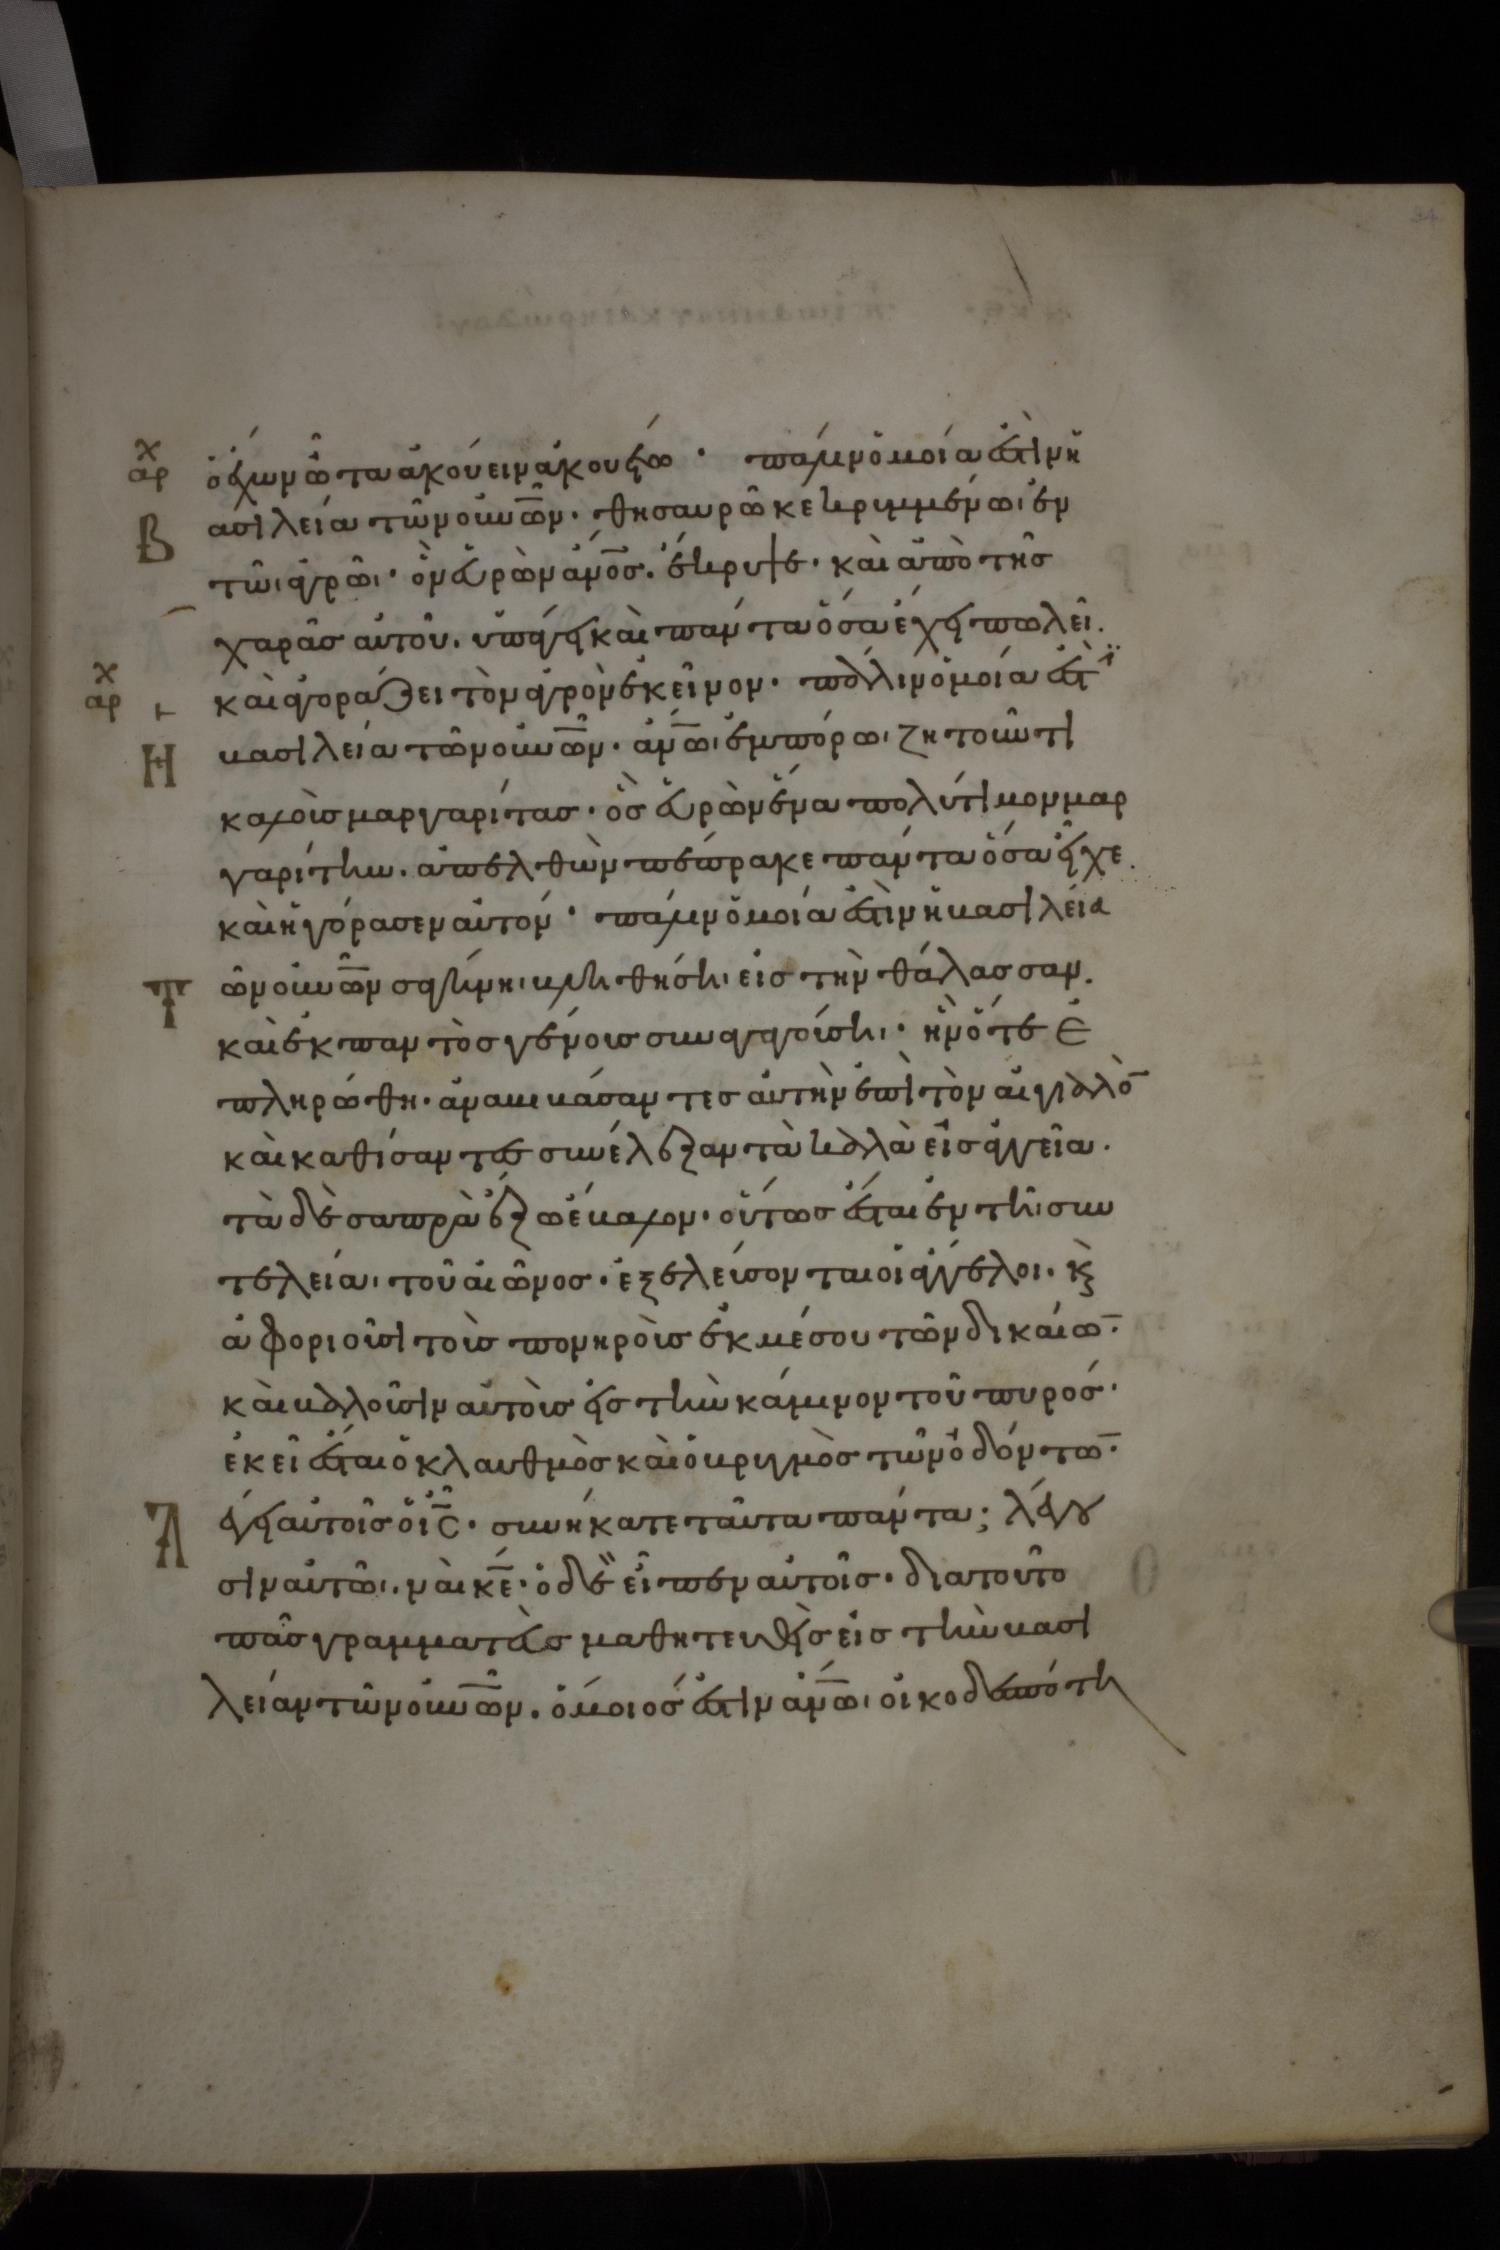 ὁ ἔχων ὦτα ἀκούειν ἀκουέτω · πάλιν ὁμοία ἐστὶν ἡ
Βασιλεία τῶν οὐνῶν · θησαυρῶ κεκρυμμένωι ἐν
τῶι ἀγρῶι · ὃν εὑρὼν ἄνος · ἔκρυψε · καὶ ἀπὸ τῆς
χαρᾶς αὐτοῦ · ὑπάγει καὶ πάντα ὅσα ἔχει πωλεῖ ·
καὶ ἀγοράζει τὸν ἀγρὸν ἐκεῖνον · πάλιν ὁμοία ἐστὶ
Ἡ βασιλεία τῶν οὐνῶν · ἀνωι ἐμπόρωι ζητοῦντι
καλοὺς μαργαρίτας · ὃς εὑρὼν ἕνα πολύτιμον μαρ
γαρίτην · ἀπελθὼν πέπρακε πάντα ὅσα εἶχε ·
καὶ ἠγόρασεν αὐτόν · πάλιν ὁμοία ἐστὶν ἡ βασιλεία
Τῶν οὐνῶν σαγήνηι βληθήσηι εἰς τὴν θάλασσαν ·
καὶ ἐκ παντὸς γένους συναγαγούσηι · ἣν ὅτε ἐ
πληρώθη · ἀναβιβάσαντες αὐτὴν ἐπὶ τὸν αἰγιαλὸ
καὶ καθίσαντες συνέλεξαν τὰ καλὰ εἰς ἀγγεῖα ·
τὰ δὲ σαπρὰ ἔξω ἔβαλον · οὕτως ἔσται ἐν τῆι συν
τελείαι τοῦ αἰῶνος · ἐξελεύσονται οἱ ἄγγελοι · κ
ἀφοριοῦσι τοὺς πονηροὺς ἐκ μέσου τῶν δικαίω ·
καὶ βαλοῦσιν αὐτοὺς εἰς τὴν κάμινον τοῦ πυρός ·
ἐκεῖ ἔσται ὁ κλαυθμὸς καὶ ὁ βρυγμὸς τῶν ὀδόντω ·
Λέγει αὐτοῖς ὁ ις · συνήκατε ταῦτα πάντα ; λέγου
σιν αὐτῶι · ναὶ κε · ὁ δὲ εἶπεν αὐτοῖς · διατοῦτο
πᾶς γραμματεὺς μαθητευθεὶς εἰς τὴν βασι
λείαν τῶν οὐνῶν · ὅμοιός ἐστιν ἀνωι οἰκοδεσπότη